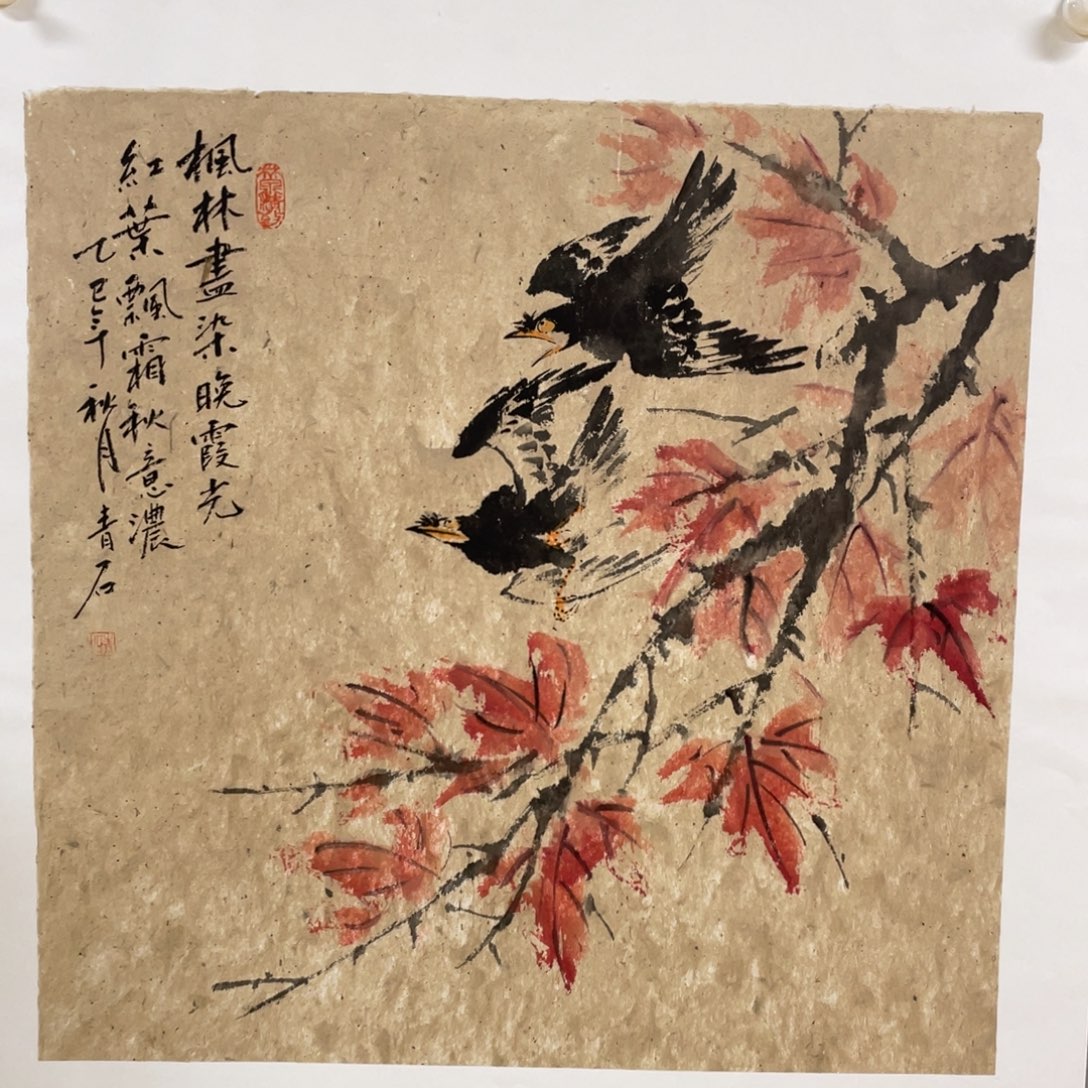 楓林盡染晚霞光
紅葉飄霜秋意濃
乙巳年秋月青石